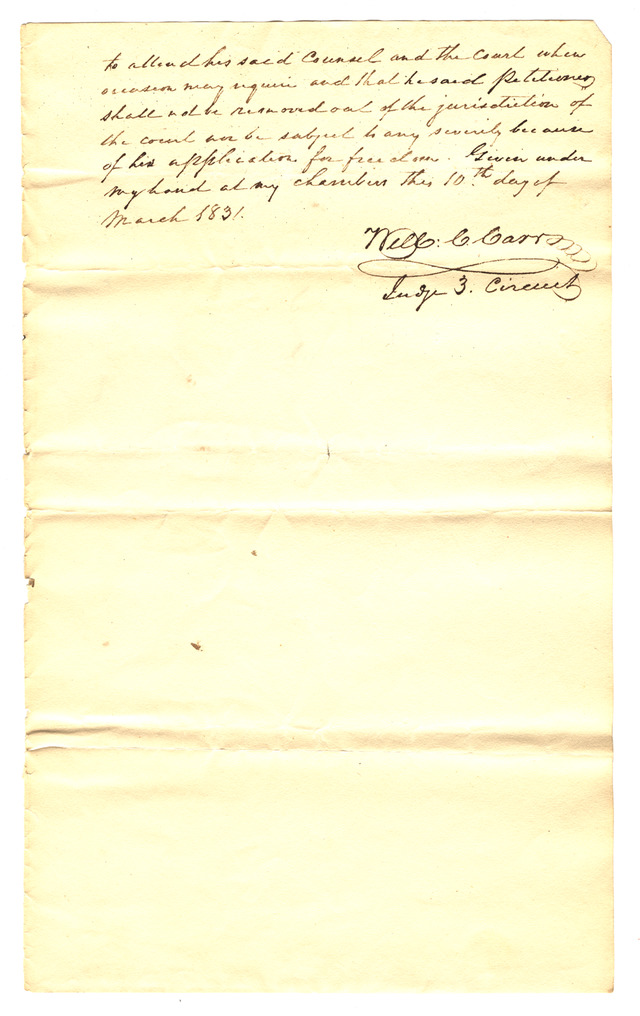 to attend his said Counsel and the Court when
occasion may require and that he said Petitioner
shall not be removed out of the jurisdiction of
the court nor be subject to any severity because
of his application for freedom. Given under
my hand at my chambers this 10.th day of
March 1831.
Will: C Carr
Judge 3. Circuit